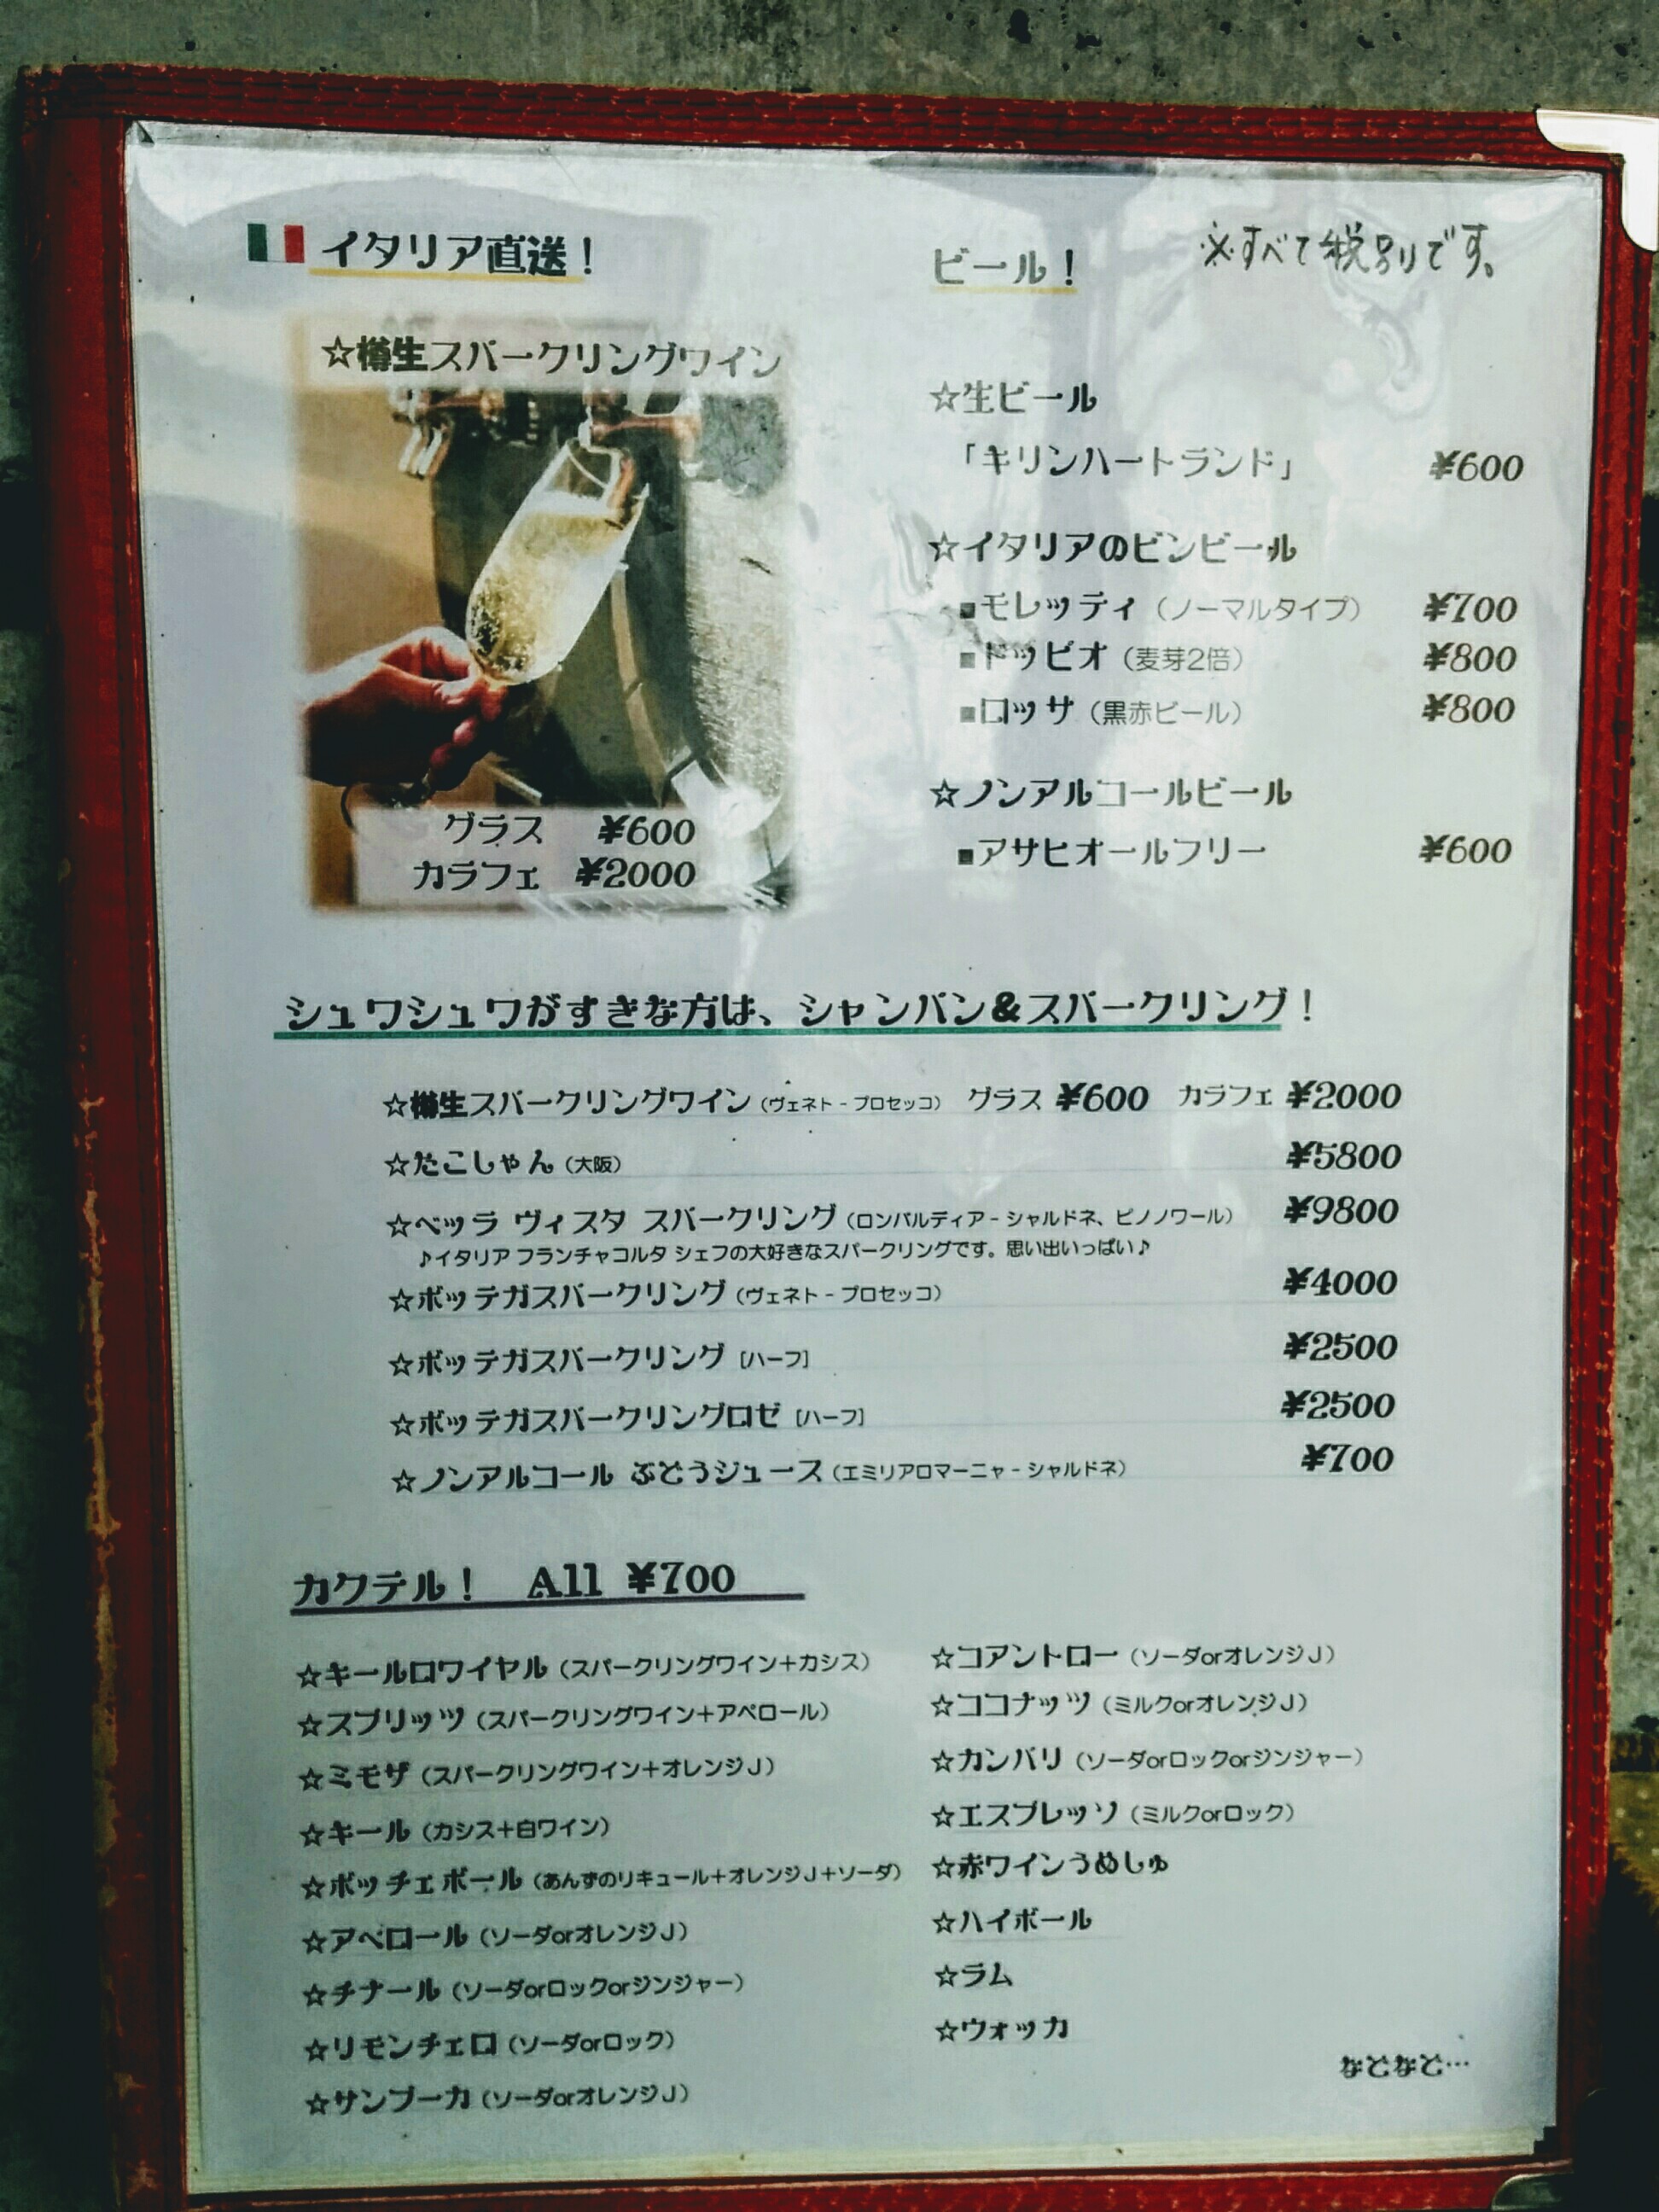 イタリア直送!
☆樽生スパークリングワイン
グラス ¥600
カラフェ ¥2000
ビール!
※すべて税別りです。
☆生ビール
「キリンハートランド」 ¥600
☆イタリアのビンビール
■モレッティ（ノーマルタイプ） ¥700
■ドッピオ（麦芽2倍） ¥800
■ロッサ（黒赤ビール） ¥800
☆ノンアルコールビール
■アサヒオールフリー ¥600
シュワシュワがすきな方は、シャンパン&スパークリング!
☆樽生スパークリングワイン（ヴェネト - プロセッコ） グラス ¥600 カラフェ ¥2000
☆たこしゃん（大阪） ¥5800
☆ベッラ ヴィスタ スパークリング（ロンバルディア - シャルドネ、ピノノワール） ¥9800
♪イタリア フランチャコルタ シェフの大好きなスパークリングです。思い出いっぱい♪
☆ボッテガスパークリング（ヴェネト - プロセッコ） ¥4000
☆ボッテガスパークリング [ハーフ] ¥2500
☆ボッテガスパークリングロゼ [ハーフ] ¥2500
☆ノンアルコール ぶどうジュース（エミリアロマーニャ - シャルドネ） ¥700
カクテル! All ¥700
☆キールロワイヤル（スパークリングワイン+カシス）
☆スプリッツ（スパークリングワイン+アペロール）
☆ミモザ（スパークリングワイン+オレンジJ）
☆キール（カシス+白ワイン）
☆ボッチェボール（あんずのリキュール+オレンジJ+ソーダ）
☆アペロール（ソーダorオレンジJ）
☆チナール（ソーダorロックorジンジャー）
☆リモンチェロ（ソーダorロック）
☆サンブーカ（ソーダorオレンジJ）
☆コアントロー（ソーダorオレンジJ）
☆ココナッツ（ミルクorオレンジJ）
☆カンパリ（ソーダorロックorジンジャー）
☆エスプレッソ（ミルクorロック）
☆赤ワインうめしゅ
☆ハイボール
☆ラム
☆ウォッカ
などなど…